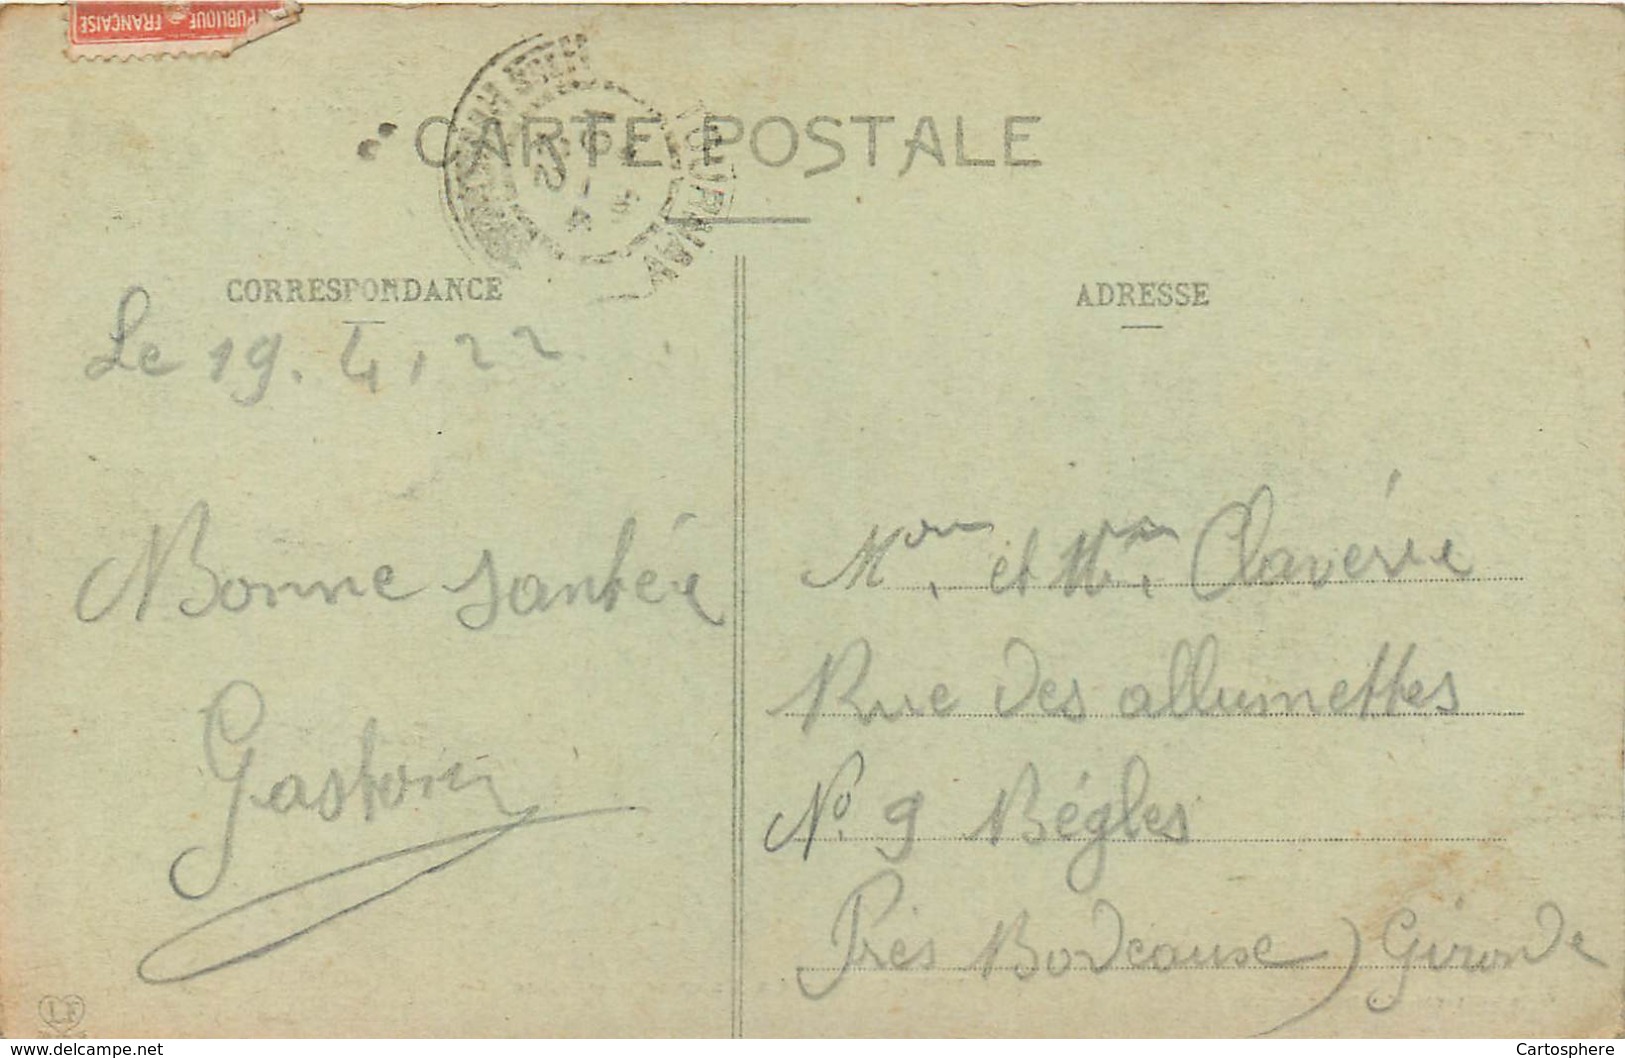 RÉPUBLIQUE FRANÇAISE
CARTE POSTALE
TOURNAY
CORRESPONDANCE
ADRESSE
Le 19.4.22
Bonne santée
Gaston
et Claverie
Rue des allumettes
No. 9 Bégles
Près Bordeause) Gironde
LF
www.delcampe.net
Cartosphere